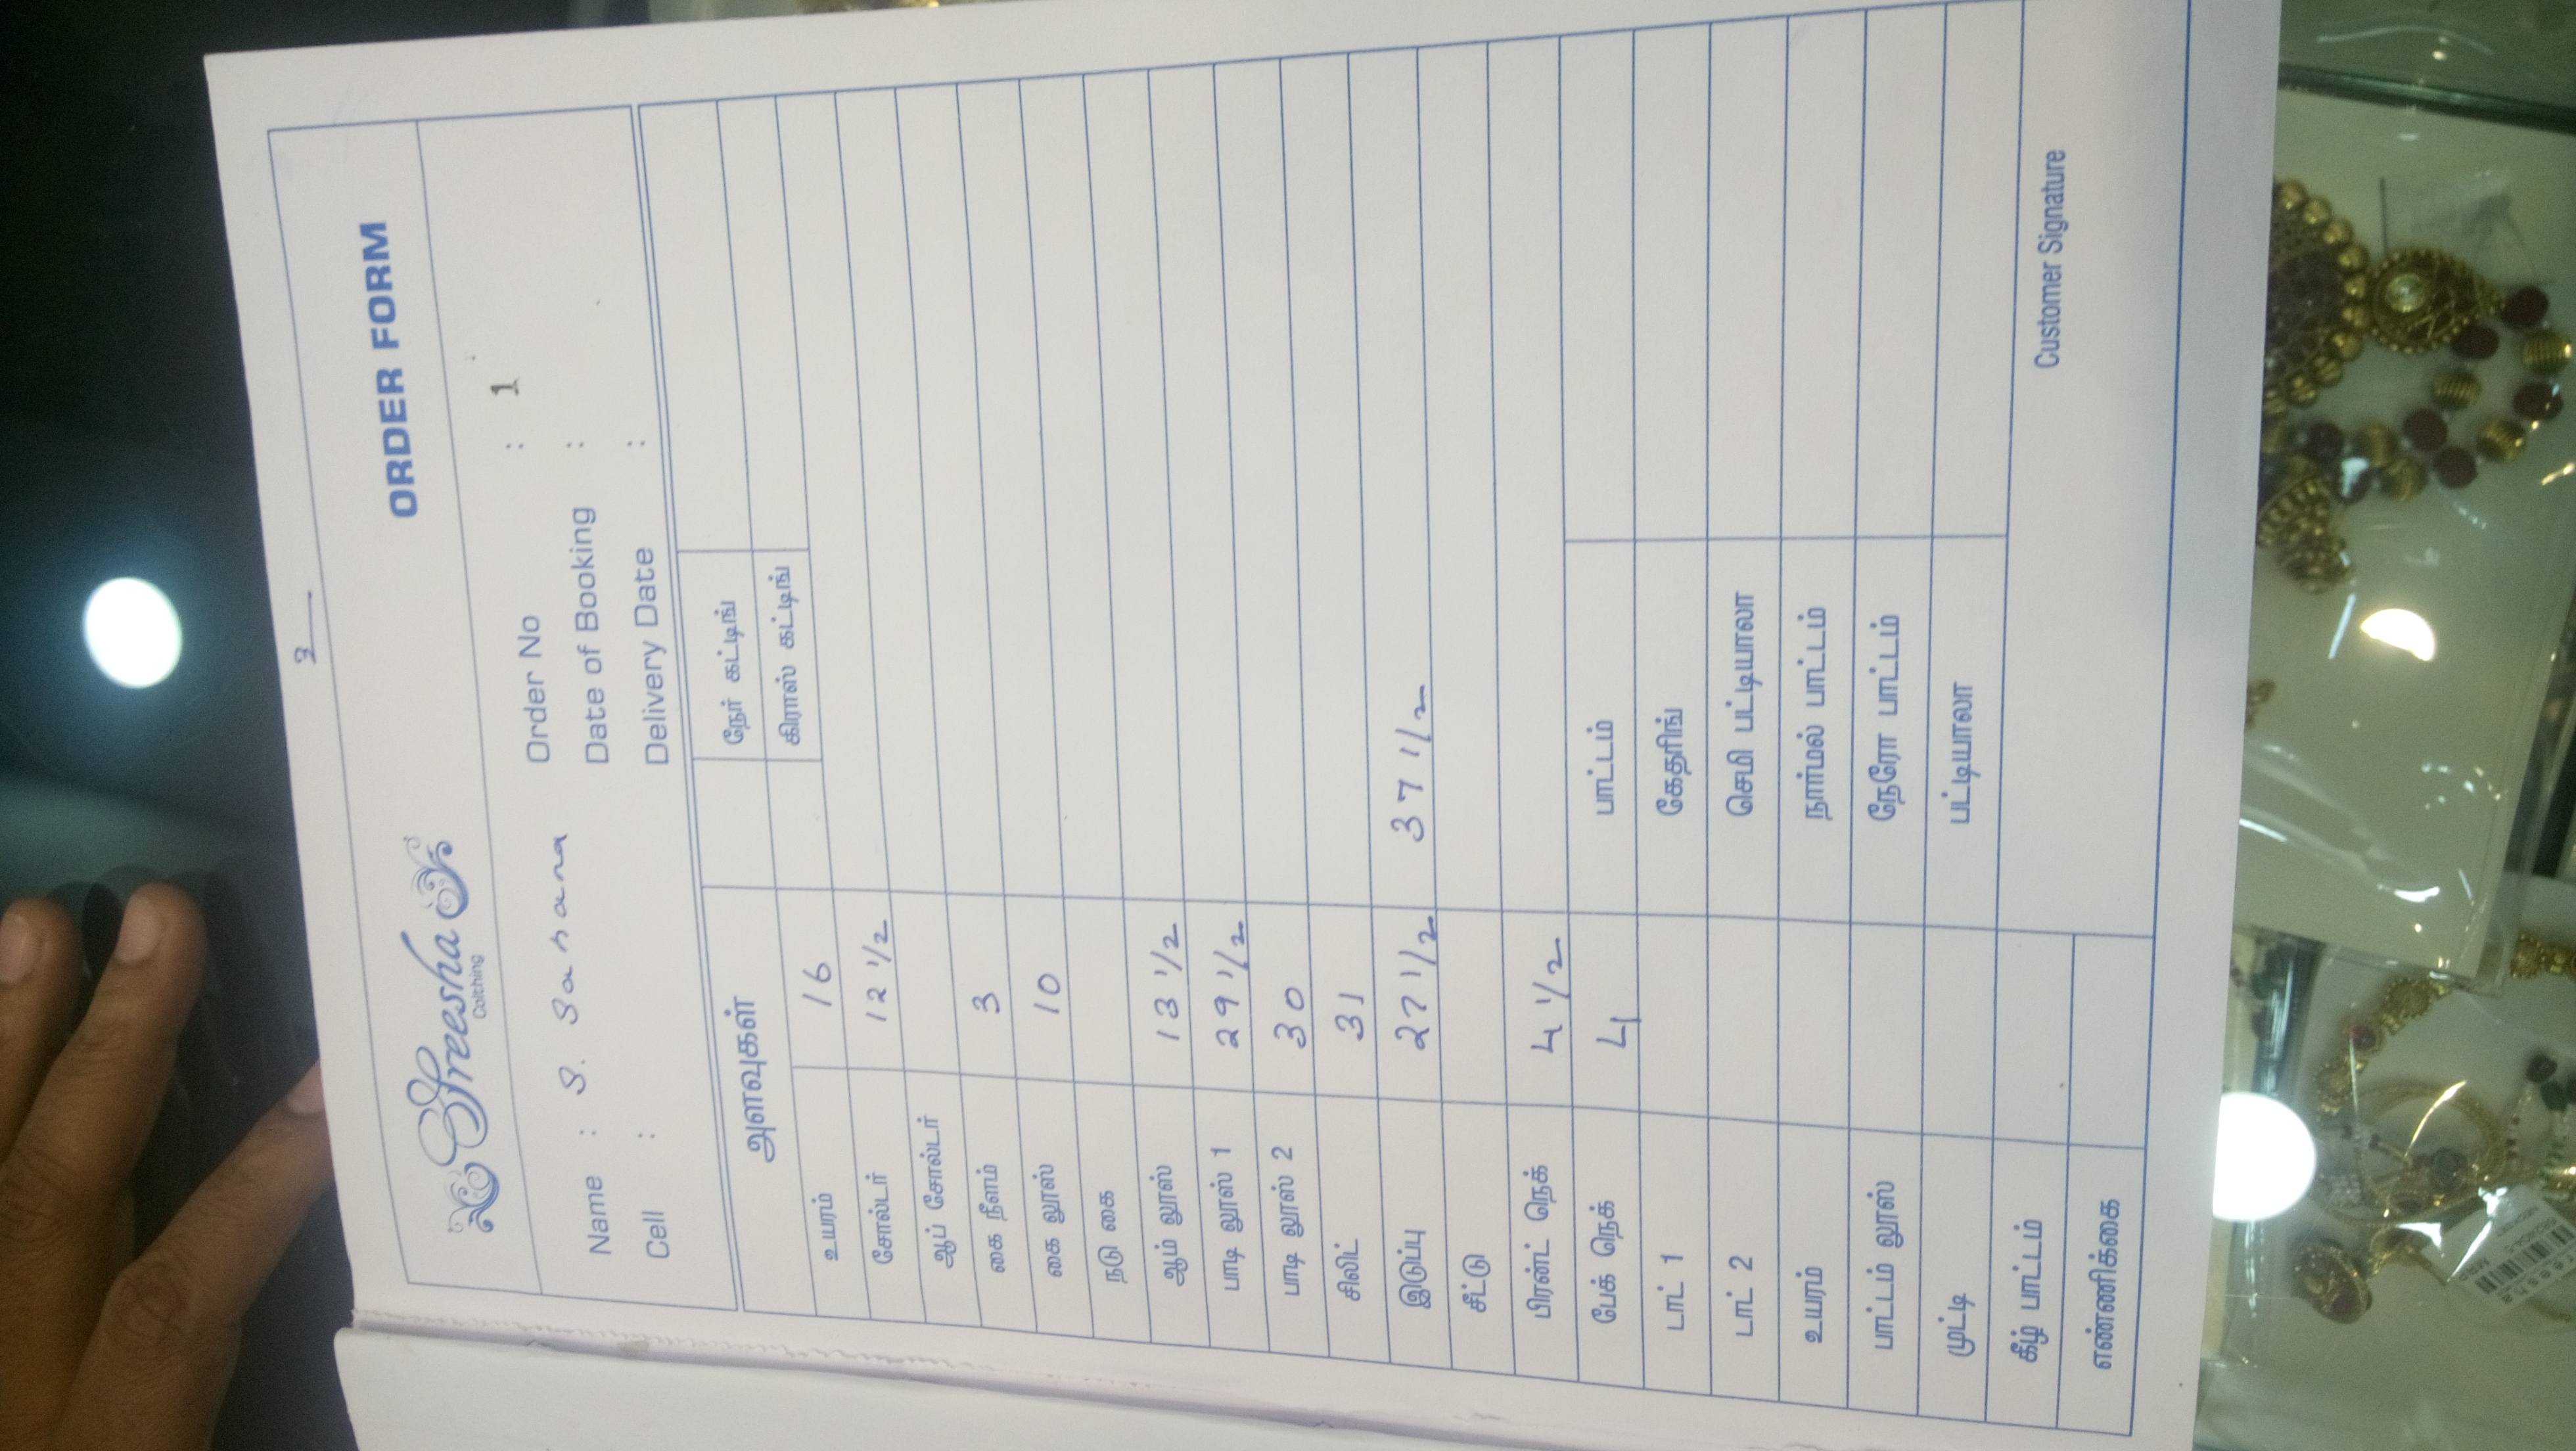 3
Sreesha
Colthing
ORDER FORM
Name : S. Sahana
Order No : 1
Cell :
Date of Booking :
Delivery Date :
அளவுகள்
நேர் கட்டிங்
கிராஸ் கட்டிங்
உயரம் 16
சோல்டர் 12 1/2
ஆப் சோல்டர்
கை நீளம் 3
கை லூஸ் 10
நடு கை
ஆம் லூஸ் 13 1/2
பாடி லூஸ் 1 29 1/2
பாடி லூஸ் 2 30
சிலிட் 31
இடுப்பு 27 1/2 37 1/2
சீட்டு
பிரன்ட் நெக் 4 1/2
பேக் நெக் 4 பாட்டம்
டாட் 1 கேதரிங்
டாட் 2 செமி பட்டியாலா
உயரம் நார்மல் பாட்டம்
பாட்டம் லூஸ் நேரோ பாட்டம்
முட்டி பட்டியாலா
கீழ் பாட்டம்
எண்ணிக்கை
Customer Signature